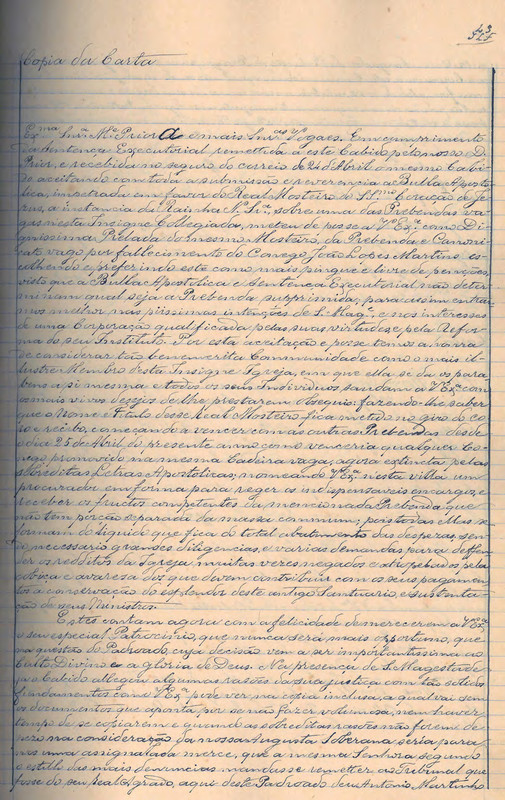 Copia da Carta
Exma Snra Me Prior A e mais Snras Vogaes. Em cumprimento
da Sentença Executorial remettida a este Cabido pelo nosso D.
Prior, e recebida no seguro do correio de 24 de Abril o mesmo Cabi-
do aceitando com toda a submissão e reverencia a Bulla Aposto-
lica, impetrada em favor do Real Mosteiro do SSmo Coração de Je-
sus, a instancia da Rainha N. Snra, sobre uma das Prebendas va-
gas nesta Insigne Collegiada, meteu de posse a V. Exa como Di-
gnissima Prelada do mesmo Mosteiro, da Prebenda e Canoni-
cato vago por fallecimento do Conego João Lopes Martins es-
colhendo e preferindo este como mais pingue e livre de pensões,
visto que a Bulla Apostolica e Sentença Executorial não deter-
minam qual seja a Prebenda supprimida; para assim entrar-
mos melhor nas piissimas intenções de S. Mage, e nos interesses
de uma Corporação qualificada pelas suas virtudes e pela Refor-
ma do seu Instituto. Por esta aceitação e posse temos a honra
de considerar tão benemerita Communidade como o mais il-
lustre Membro desta Insigne Igreja, em que ella se da os para-
bens a si mesma e todos os seus Individuos saudam a V. Exa com
os mais vivos desejos de lhe prestarem obsequio: fazendo-lhe saber
que o Nome e Titulo desse Real Mosteiro fica metido no giro do co-
ro e recibo, começando a vencer com as outras Prebendas desde
o dia 25 de Abril do presente anno como venceria qualquer Co-
nego promovido na mesma Cadeira vaga, agora extincta pelas
sobreditas Letras Apostolicas; nomeando V. Exa nesta villa um
procurador em forma para reger os indispensaveis encargos, e
receber os fructos competentes da mencionada Prebenda que
não tem porção separada da massa commum; pois todas ellas se
formam do liquido que fica do total abatimento das despezas, sen-
do necessario grandes diligencias, e varias demandas para deffen-
der os redditos da Igreja muitas vezes negados e atropelados, pela
cobiça e avareza dos que devem contribuir com os seus pagamen-
tos á conservação do esplendor deste antigo Santuario, e sustenta-
ção de seus Ministros.
Estes contam agora com a felicidade de merecerem a V. Exa
o seu especial Patrocinio, que nunca será mais opportuno, que
na questão do Padroado, cuja decisão vem a ser importantissima ao
Culto Divino e a gloria de Deus. Na presença de S. Magestade
fez o Cabido allegar algumas rasões da sua justiça com tão solidos
fundamentos como V. Exa pode ver na copia inclusa, a qual vai sem
os documentos que aponta, por se não fazer volumosa, nem haver
tempo de se copiarem e quando as sobreditas rasões não forem de
pezo na consideração da nossa Augusta Soberana, seria para
nos uma assignalada merce, que a mesma Senhora segundo
o estillo das mais denuncias mandasse remetter ao Tribunal que
fosse do seu Real Agrado, a que deste Padroado deu Antonio Martinho